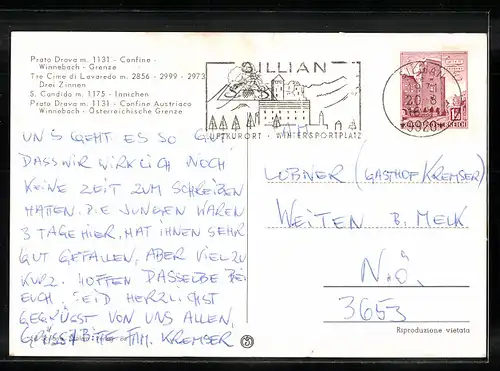 Prato Drava m. 1131 - Confine -
Winnebach - Grenze
Tre Cime di Lavaredo m. 2856 - 2999 - 2973
Drei Zinnen
S. Candido m. 1175 - Innichen
Prato Drava m. 1131 - Confine Austriaco
Winnebach - Österreichische Grenze
SILLIAN
LUFTKURORT · WINTERSPORTPLATZ
9920
UNS GEHT ES SO GUT
DASS WIR WIRKLICH NOCH
KEINE ZEIT ZUM SCHREIBEN
HATTEN. DIE JUNGEN WAREN
3 TAGE HIER, HAT IHNEN SEHR
GUT GEFALLEN, ABER VIEL ZU
KURZ. HOFFEN DASSELBE BEI
EUCH. SEID HERZLICHST
GEGRÜSST VON UNS ALLEN,
FAM. KREMSER
FAM.
LOBNER (GASTHOF KREMSER)
WEITEN B. MELK
N.Ö.
3653
Riproduzione vietata